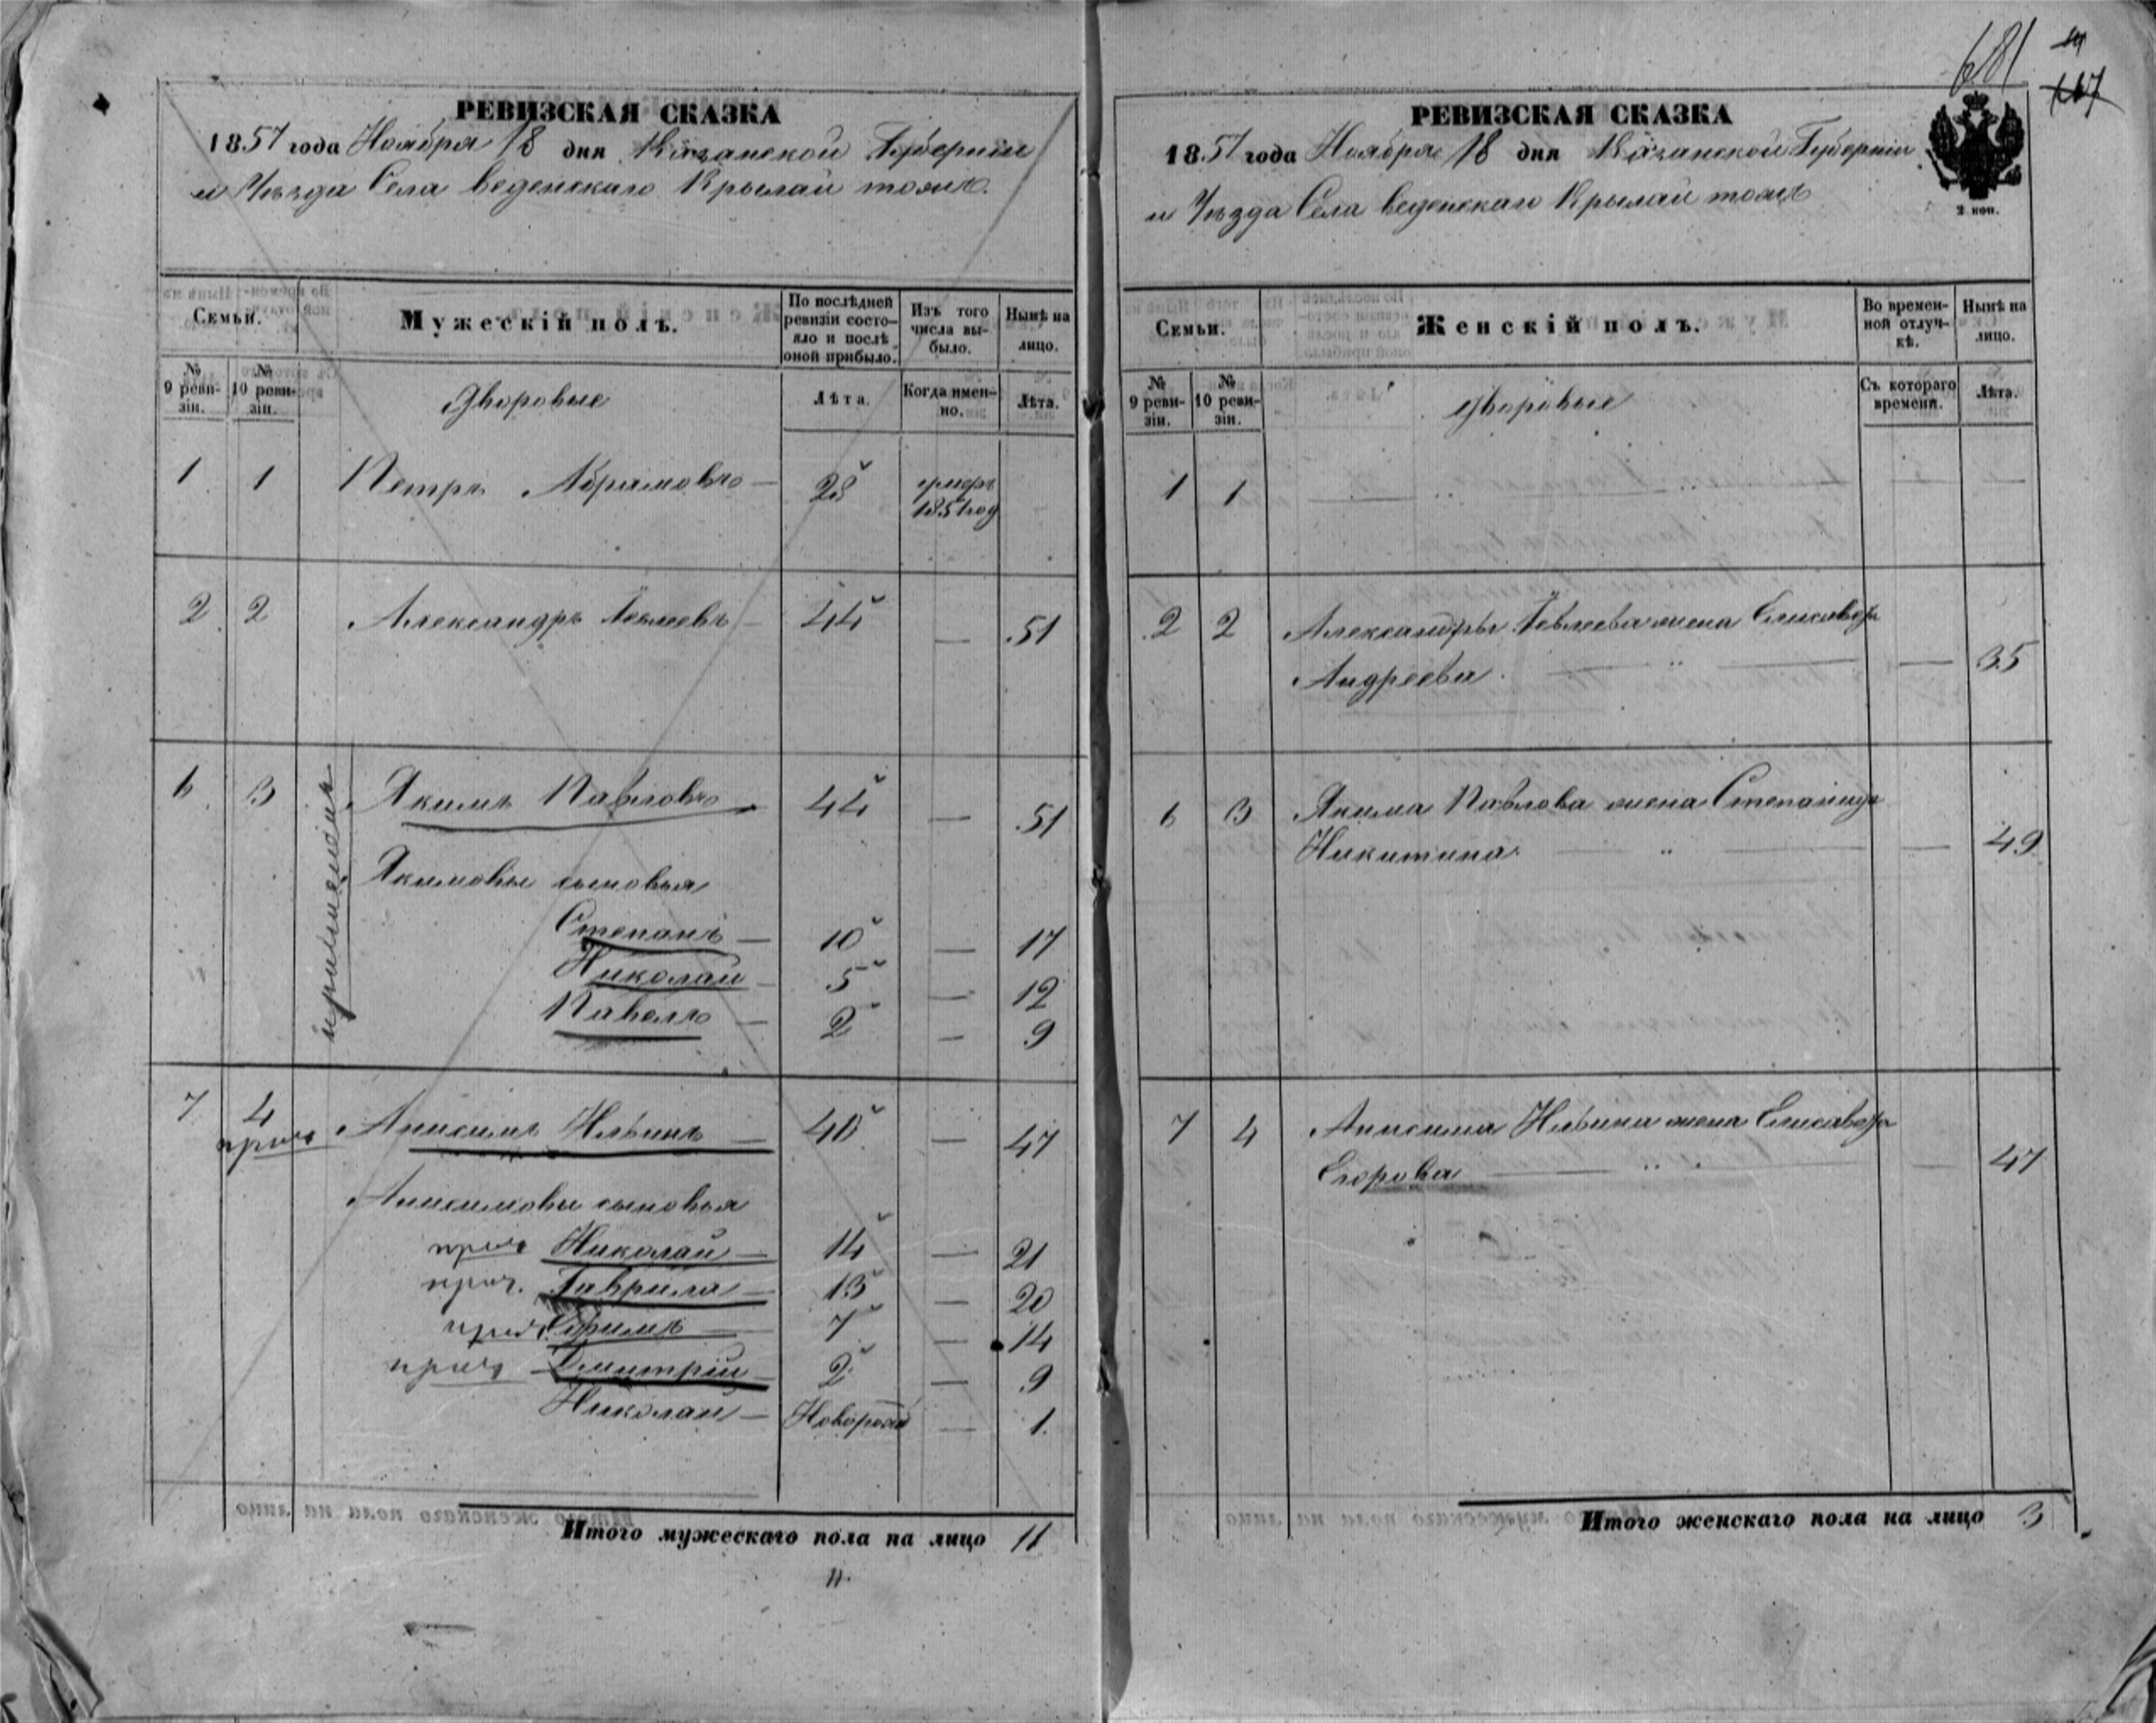 681
РЕВИЗСКАЯ СКАЗКА
1857 года Ноября 18 дня Казанской Губерніи
и Уѣзда Села Веденскаго Крылай тожъ.
Семьи.
Мужескій полъ.
По послѣдней ревизіи состояло и послѣ оной прибыло.
Изъ того числа выбыло.
Нынѣ на лицо.
№ 9 ревизіи.
№ 10 ревизіи.
Дворовые
Лѣта.
Когда именно.
Лѣта.
1 1 Петръ Абрамовъ — 28 умеръ 1851 год
2 2 Александръ — 44 — 51
6 3 Якимъ Павловъ 44 — 51
Якимовы сыновья
Степанъ — 10 — 17
Николай — 5 — 12
Павелъ — 2 — 9
7 4 Анисимъ Ильинъ — 40 — 47
прич
Анисимовы сыновья
прич Николай — 14 — 21
прич. Гаврила — 13 — 20
прич Ефимъ — 7 — 14
прич Дмитрій — 2 — 9
Николай — Новорож — 1.
Итого мужескаго пола на лицо 11
11.
РЕВИЗСКАЯ СКАЗКА
1857 года Ноября 18 дня Казанской Губерніи
и Уѣзда Села Веденскаго Крылай тожъ
2 коп.
Семьи.
Женскій полъ.
Во временной отлучкѣ.
Нынѣ на лицо.
№ 9 ревизіи.
№ 10 ревизіи.
Дворовые
Съ котораго времени.
Лѣта.
1 1
2 2 Александры жена Елисавета
Андреева. — 35
6 3 Якима Павлова жена Степанида
Никитина. — 49
7 4 Анисима Ильина жена Елисавета
Егорова — 47
Итого женскаго пола на лицо 3